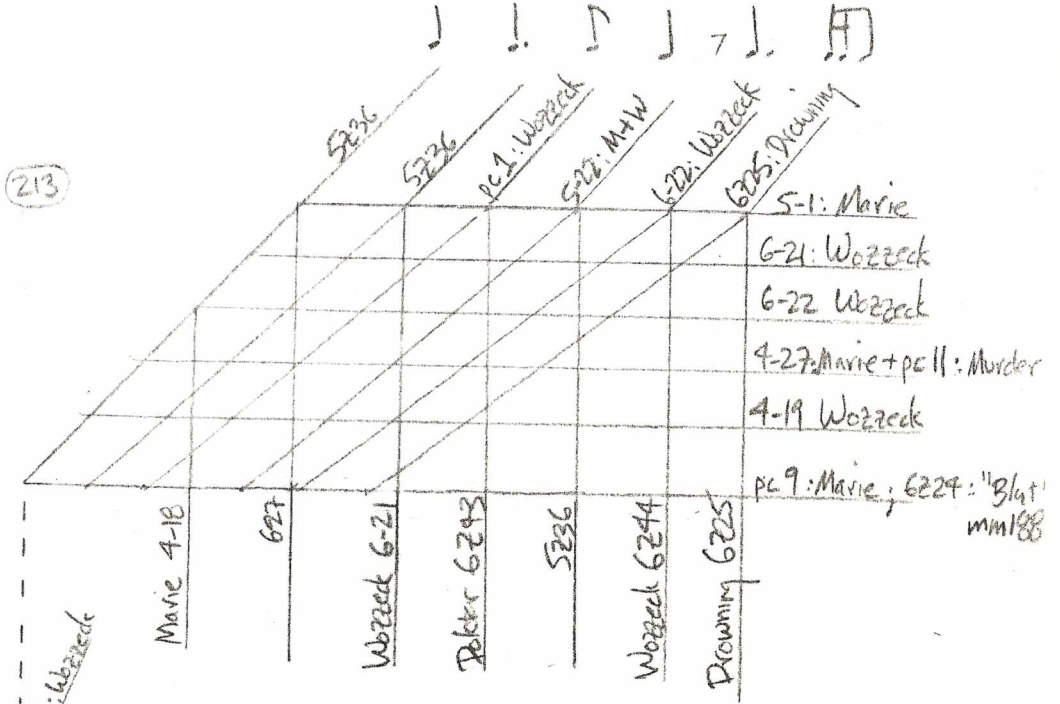 213
5Z36
5Z36
pc 1: Wozzeck
5-22: M+W
6-22: Wozzeck
6Z25: Drowning
5-1: Marie
6-21: Wozzeck
6-22 Wozzeck
4-27: Marie + pc 11: Murder
4-19 Wozzeck
pc 9: Marie; 6Z24: "Blut"
mm188
: Wozzeck
Marie 4-18
6Z7
Wozzeck 6-21
Doktor 6Z43
5Z36
Wozzeck 6Z44
Drowning 6Z25